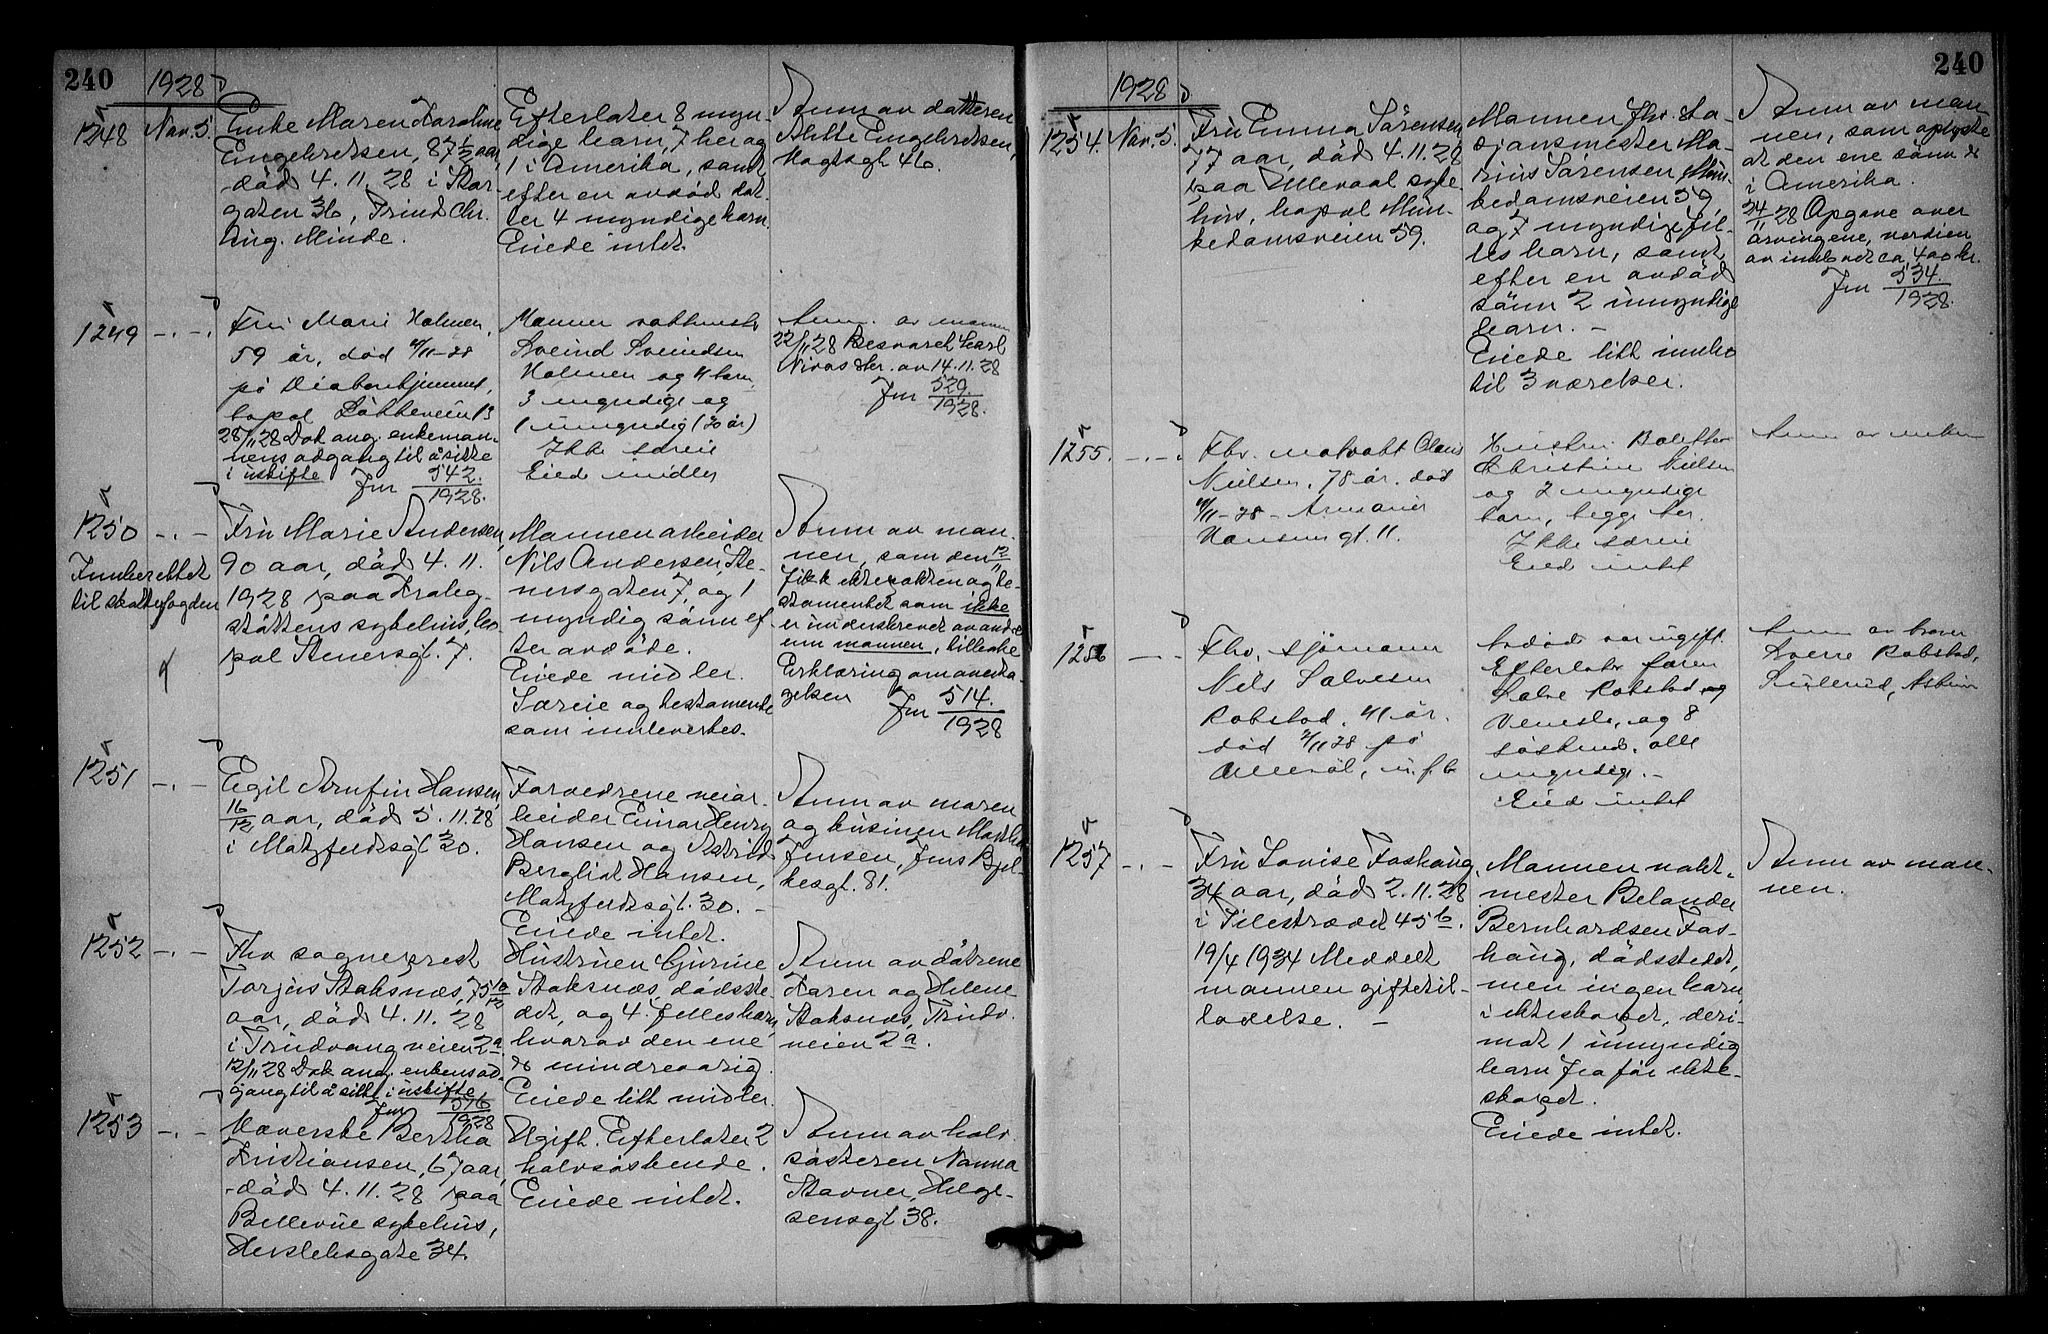 240
1928
1248 Nov. 5.
Enke Maren Karoline
Engebretsen, 87 1/2 aar,
død 4.11.28 i Stor-
gaten 36, Frind Chr.
Aug. Minde.
Efterlater 8 myn-
dige barn, 7 her og
1 i Amerika, samt
efter en avdød dat-
ter 4 myndige barn.
Eiede intet.
Anm. av datteren
Engebretsen,
46.
1249 -.-.
Fru Marie Holmen,
59 år, død 4/11-28
på Diakonhjemmet,
bopæl 13
28/11 28 Dok ang. enkeman-
nens adgang til å sitte
i uskifte Jnr 542.
1928.
Mannen
Sveind Sveindsen
Holmen og 4 barn,
3 myndige og
1 umyndig (20 år)
Ikke særeie
Eied midler
Anm. av mannen
22/11 28 Besvaret Carl
skr. av 14.11.28
Jnr 529.
1928.
1250 -.-
Innberettet
til skattefogden
Fru Marie Andersen,
90 aar, død 4.11.
1928 paa Krohg-
støttens sykehus, bo-
pæl Stenersgt. 7.
Mannen arbeider
Nils Andersen, Ste-
nersgaten 7, og 1
myndig sønn ef-
ter avdøde.
Eiede midler.
Særeie og testamente
som innleveres.
Anm. av man-
nen, som den 12/11
fikk ektepakten og te-
stamentet som ikke
er underskrevet av andre
enn mannen, tilbake
Erklæring om overta-
gelsen Jnr 514.
1928
1251 -.-
Egil Arnfin Hansen,
16/12 aar, død 5.11.28
i Motzfeldtsgt 30.
Forældrene veiar-
beider Einar Henry
Hansen og Astrid
Bergliot Hansen,
Motzfeldtsgt. 30. -
Eiede intet.
Anm av moren
og kusinen
Jensen, Jens Bjel-
kesgt. 81.
1252 -.-
Fhv sogneprest
Torjus Staksnæs, 75 10/12
aar, død 4.11.28
i Trudvangveien 2a
12/11 28 Dok ang. enkens ad-
gang til å sitte i uskifte
Jnr 516
1928
Hustruen Gurine
Staksnæs, dødsste-
det, og 4 fellesbarn,
hvorav den ene
er mindreaarig.
Eiede litt midler.
Anm av døtrene
Karen og Helene
Staksnæs, Trudv.
veien 2a.
1253 -.-
Væverske Bertha
Kristiansen, 67 aar,
død 4.11.28 paa
Bellevue sykehus,
Herslebsgate 34.
Ugift. Efterlater 2
halvsøskende.
Eiede intet.
Anm av halv
søsteren Nanna
Stavner, Helge-
sensgt 38.
240
1928
1254. Nov. 5.
Fru Emma Sørensen
77 aar, død 4.11.28
paa Ullevaal syke-
hus, bopæl Mun-
kedamsveien 59.
Mannen fhv. sta-
sjonsmester Ma-
rius Sørensen, Mun-
kedamsveien 59
og 7 myndige fel-
les barn, samt
efter en avdød
sønn 2 umyndige
barn. -
Eiede litt innbo
til 3 værelser.
Anm av man-
nen, som oplyste
at den ene sønn er
i Amerika.
24/11 28 Opgave over
arvingene, verdien
av innboet ca. 400 kr.
Jnr 534.
1928.
1255. -.-.
Fhv. Olaus
Nielsen, 78 år. død
4/11-28 - Armauer
Hansens gt. 11.
Hustru
Christine Nielsen
og 2 myndige
barn, begge her.
Ikke særeie
Eied intet
Anm av enken
1256 -.-
Fhv. sjømann
Nils Salvesen
Robstad. 41 år.
død 2/11 28 på
Ullevål,
Avdøde var ugift.
Efterlater faren
Salve Robstad og
Vennesla, og 8
søskende, alle
myndige. -
Eied intet
Anm av broren
Sverre Robstad,
1257 -.-
Fru Lovise Foshaug,
34 aar, død 2.11.28
i Pilestrædet 45 b.
19/4 1934 Meddelt
mannen giftetil-
ladelse. -
Mannen vakt-
mester Belander
Bernhardsen Fos-
haug, dødsstedet,
men ingen barn
i ekteskapet, deri-
mot 1 umyndig
barn fra før ekte-
skapet.
Eiede intet.
Anm av man-
nen.